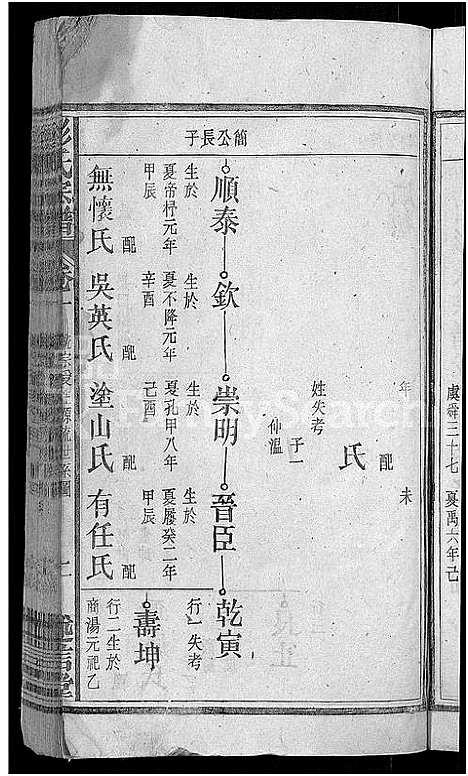 虞舜三十七 夏禹六年己
年 未
配
氏
姓失考
子一
仲溫
簡公長子
順泰 欽 崇明 晉臣 乾寅
生於
夏帝杼元年
甲辰
配
無懷氏
生於
夏不降元年
辛酉
配
吳英氏
生於
夏孔甲八年
己酉
配
塗山氏
生於
夏履癸二年
甲辰
配
有任氏
行一失考
壽坤
行二生於
商湯元祀乙
彭氏宗譜